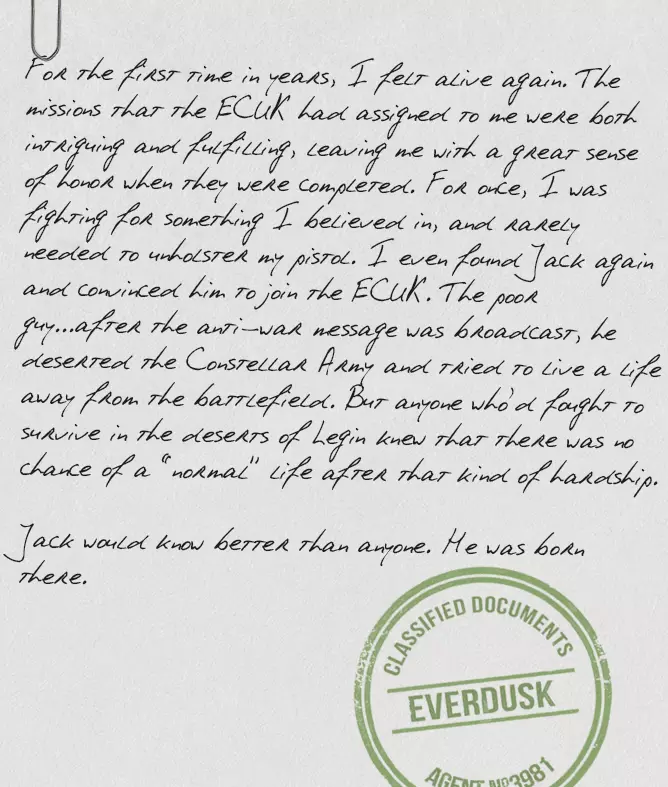 For the first time in years, I felt alive again. The
missions that the ECUK had assigned to me were both
intriguing and fulfilling, leaving me with a great sense
of honor when they were completed. For once, I was
fighting for something I believed in, and rarely
needed to unholster my pistol. I even found Jack again
and convinced him to join the ECUK. The poor
guy...after the anti-war message was broadcast, he
deserted the Constellar Army and tried to live a life
away from the battlefield. But anyone who'd fought to
survive in the deserts of Legin knew that there was no
chance of a "normal" life after that kind of hardship.
Jack would know better than anyone. He was born
there.
CLASSIFIED DOCUMENTS
EVERDUSK
AGENT Nº3981